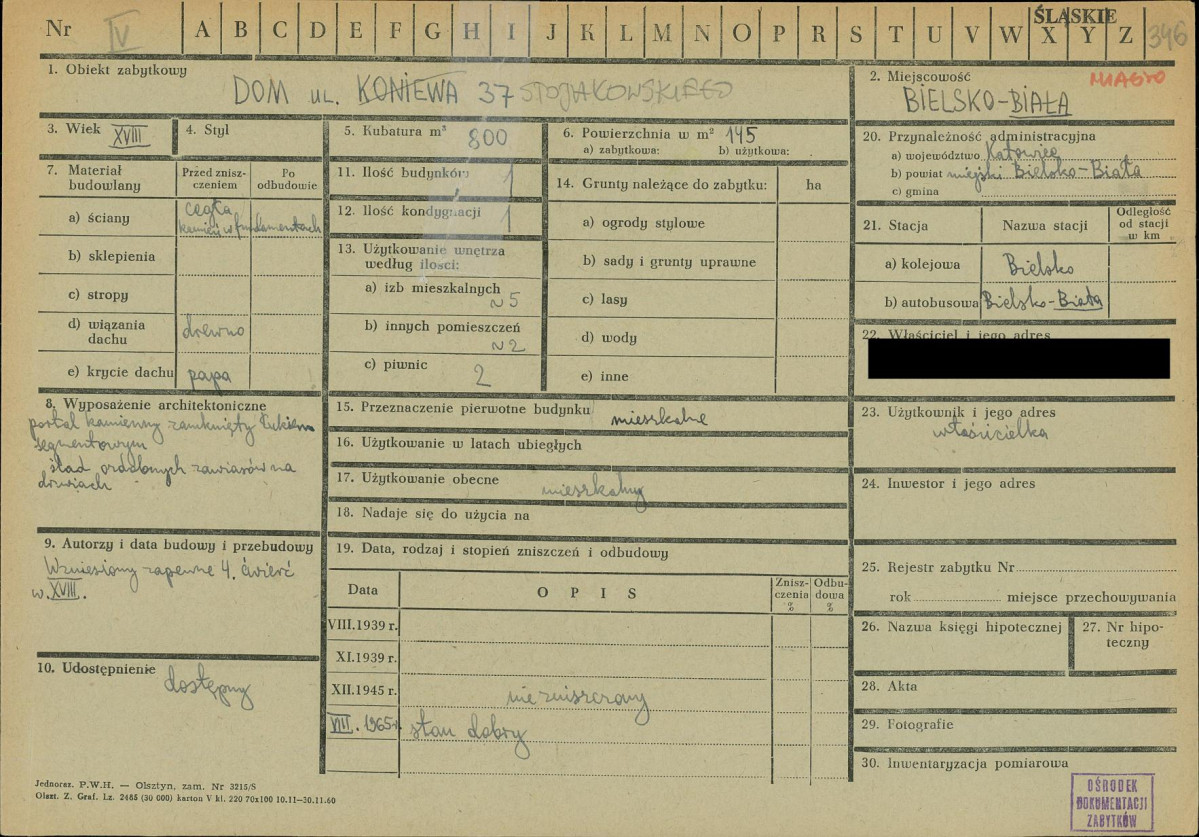 ŚLĄSKIE
Nr IV A B C D E F G H I J K L M N O P R S T U V W X Y Z 346
1. Obiekt zabytkowy
DOM UL. KONIEWA 37 STOJAŁOWSKIEGO
2. Miejscowość MIASTO
BIELSKO-BIAŁA
3. Wiek XVIII
4. Styl
5. Kubatura m³ 800
6. Powierzchnia w m² 145
a) zabytkowa: b) użytkowa:
20. Przynależność administracyjna
a) województwo Katowice
b) powiat miejski Bielsko-Biała
c) gmina
7. Materiał budowlany
Przed znisz-
czeniem
Po
odbudowie
a) ściany cegła
kamień w fundamentach
b) sklepienia
c) stropy
d) wiązania
dachu drewno
e) krycie dachu papa
11. Ilość budynków 1
12. Ilość kondygnacji 1
13. Użytkowanie wnętrza
według ilości:
a) izb mieszkalnych
~5
b) innych pomieszczeń
~2
c) piwnic 2
14. Grunty należące do zabytku: ha
a) ogrody stylowe
b) sady i grunty uprawne
c) lasy
d) wody
e) inne
21. Stacja Nazwa stacji
Odległość
od stacji
w km
a) kolejowa Bielsko
b) autobusowa Bielsko-Biała
22. Właściciel i jego adres
8. Wyposażenie architektoniczne
portal kamienny zamknięty łukiem
segmentowym
ślad ozdobnych zawiasów na
drzwiach
15. Przeznaczenie pierwotne budynku mieszkalne
16. Użytkowanie w latach ubiegłych
17. Użytkowanie obecne mieszkalny
18. Nadaje się do użycia na
23. Użytkownik i jego adres
właścicielka
24. Inwestor i jego adres
9. Autorzy i data budowy i przebudowy
Wzniesiony zapewne 4. ćwierć
w. XVIII.
10. Udostępnienie
dostępny
19. Data, rodzaj i stopień zniszczeń i odbudowy
Data OPIS
Znisz-
czenia
%
Odbu-
dowa
%
VIII.1939 r.
XI.1939 r.
XII.1945 r. nie zniszczony
VIII. 1965 r. stan dobry
25. Rejestr zabytku Nr
rok miejsce przechowywania
26. Nazwa księgi hipotecznej
27. Nr hipo-
teczny
28. Akta
29. Fotografie
30. Inwentaryzacja pomiarowa
OŚRODEK
DOKUMENTACJI
ZABYTKÓW
Jednoraz. P.W.H. — Olsztyn, zam. Nr 3215/S
Olszt. Z. Graf. Lz. 2485 (30 000) karton V kl. 220 70x100 10.11—30.11.60